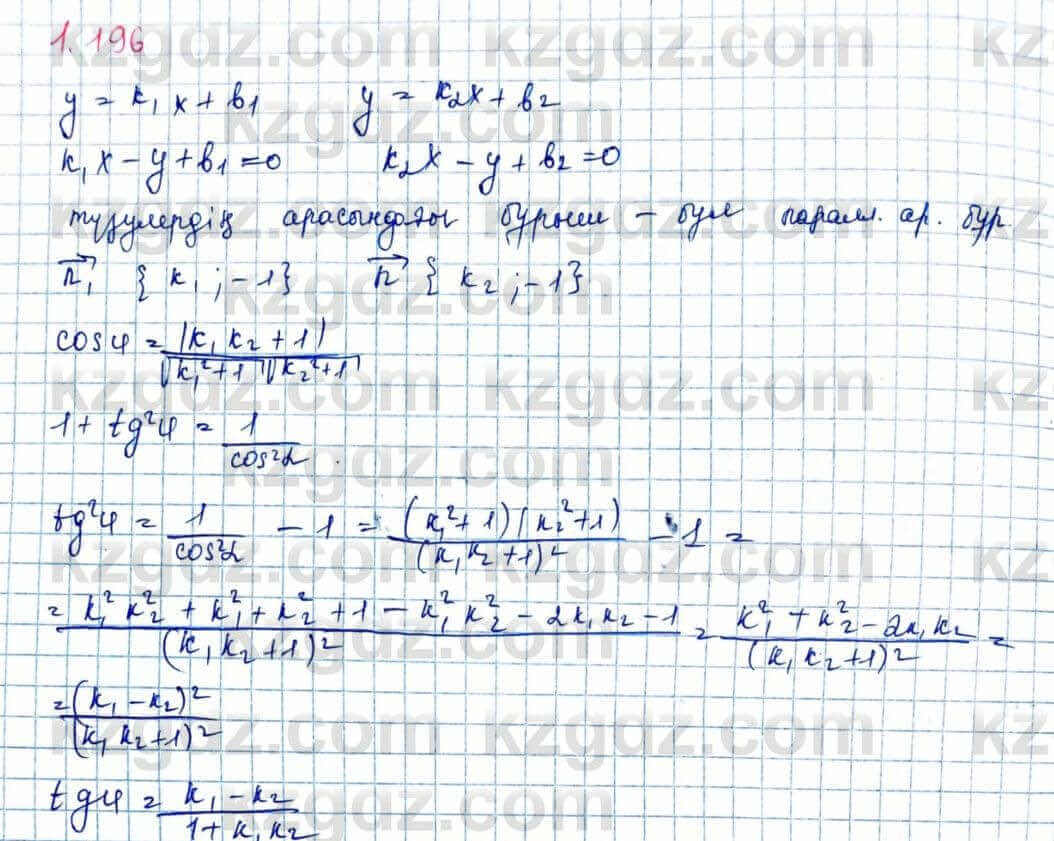 1.196
y = k₁x + b₁ y = k₂x + b₂
k₁x - y + b₁ = 0 k₂x - y + b₂ = 0
түзулердің арасындағы бұрыш - бұл паралл. ар. бұр.
n₁ {k₁; -1} n {k₂; -1}
cosφ = |k₁k₂ + 1| / √k₁²+1 √k₂²+1
1 + tg²φ = 1 / cos²α.
tg²φ = 1 / cos²α - 1 = (k₁² + 1)(k₂² + 1) / (k₁k₂ + 1)² - 1 =
= k₁²k₂² + k₁² + k₂² + 1 - k₁²k₂² - 2k₁k₂ - 1 / (k₁k₂ + 1)² = k₁² + k₂² - 2k₁k₂ / (k₁k₂ + 1)² =
= (k₁ - k₂)² / (k₁k₂ + 1)²
tgφ = k₁ - k₂ / 1 + k₁k₂
kzgdz.com